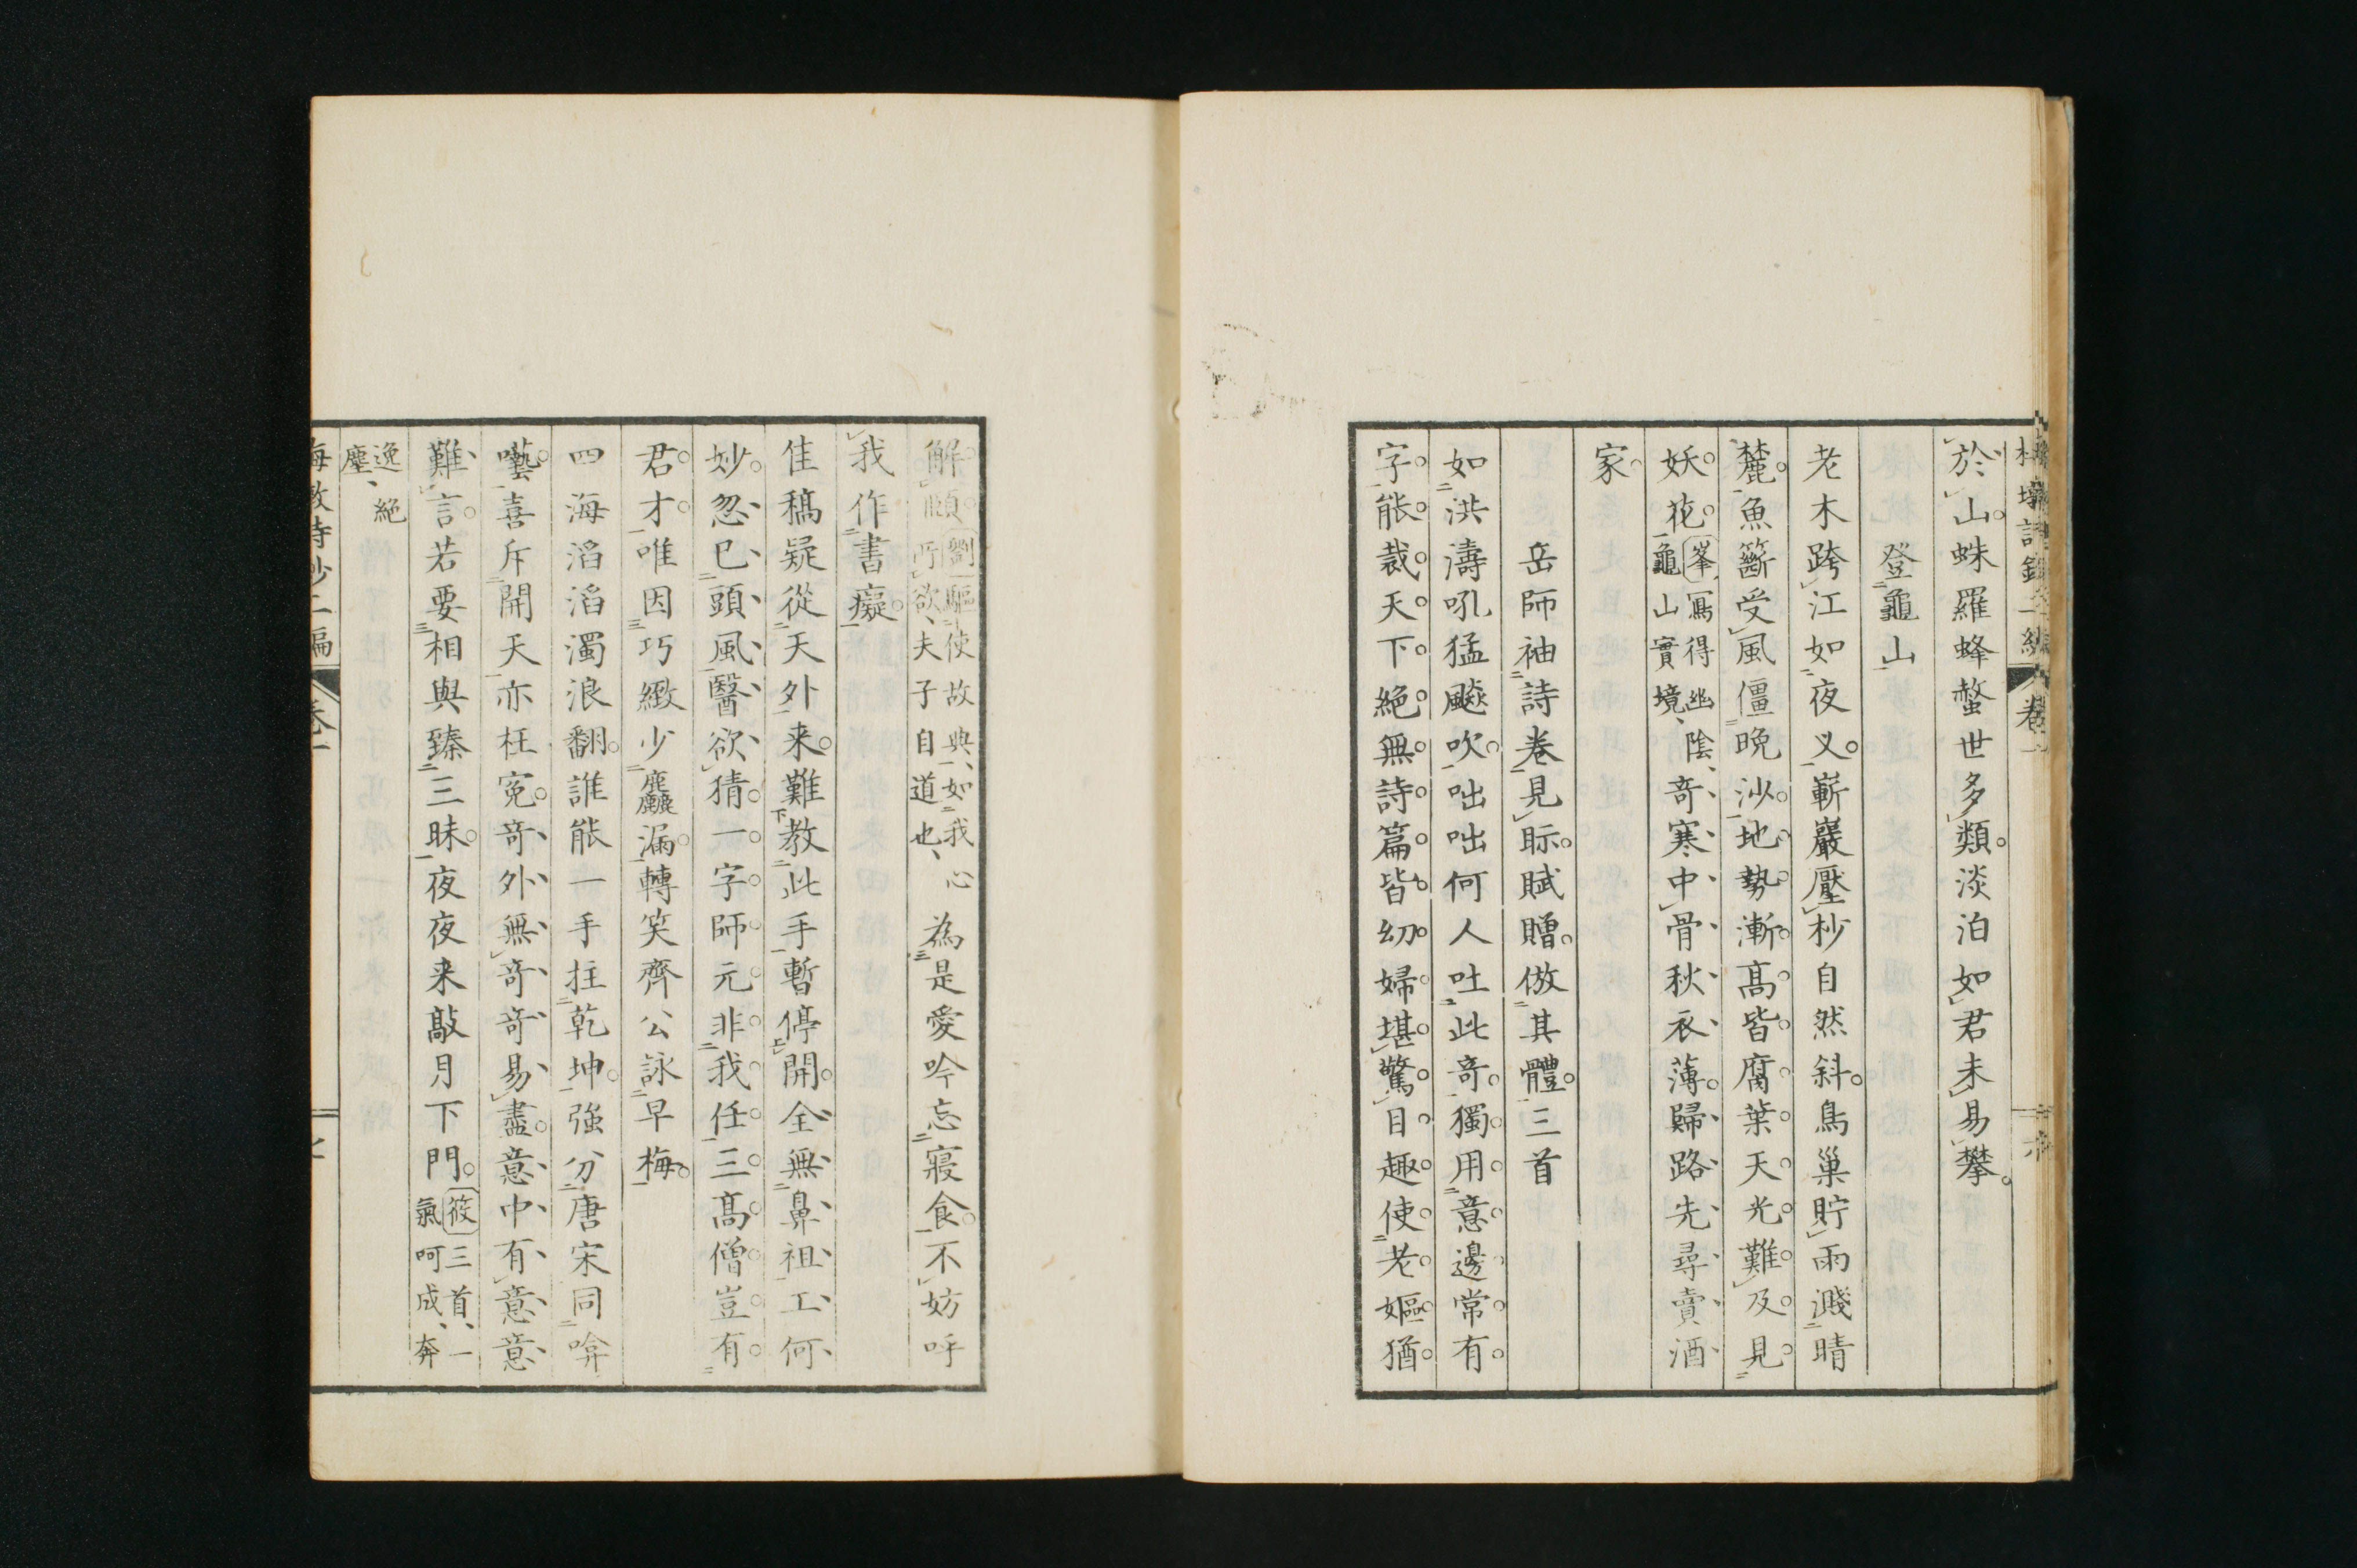 於山蛛羅蜂螫世多類淡泊如君未易攀
登龜山
老木跨江如夜叉嶄巖壓杪自然斜鳥巢貯雨濺晴
麓魚籪受風僵晚沙地勢漸高皆腐葉天光難及見
妖花峯寫得幽陰龜山實境奇寒中骨秋衣薄歸路先尋賣酒
家
岳師袖詩卷見眎賦贈倣其體三首
如洪濤吼猛飈吹咄咄何人吐此奇獨用意邊常有
字能裁天下絕無詩篇皆幼婦堪驚目趣使老嫗猶
解頤劉驅使故典如我心所欲夫子自道也為是愛吟忘寢食不妨呼
我作書癡
佳稿疑從天外来難教此手暫停開全無鼻祖工何
妙忽已頭風醫欲猜一字師元非我任三高僧豈有
君才唯因巧緻少麤漏轉笑齊公詠早梅
四海滔滔濁浪翻誰能一手拄乾坤強分唐宋同喰
囈喜斥開天亦枉冤奇外無奇奇易盡意中有意意
難言若要相與臻三昧夜夜来敲月下門筱三首一氣呵成奔
逸絕塵